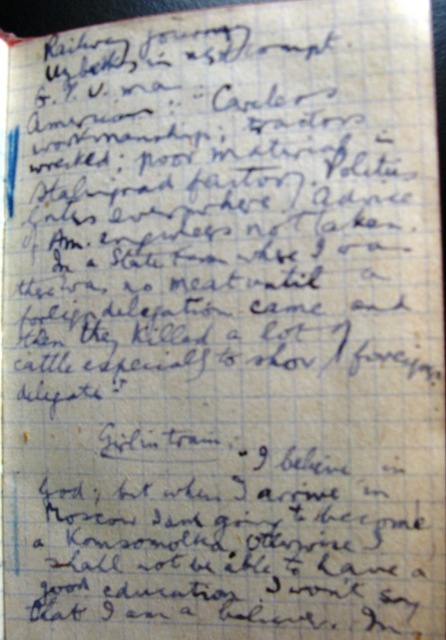 Railway journey
Uzbeks in next compt.
G.P.U. man
American: - "Careless
workmanship; tractors
wrecked; poor material in
Stalingrad factory. Politics
enters everywhere. Advice
of Am. engineers not taken.
In a State Farm where I was
there was no meat until a
foreign delegation came and
then they killed a lot of
cattle especially to show foreign
delegates"
Girl in train: -
"I believe in
God; but when I arrive in
Moscow I am going to become
a Komsomolka, otherwise I
shall not be able to have a
good education. I won't say
that I am a believer. I'm